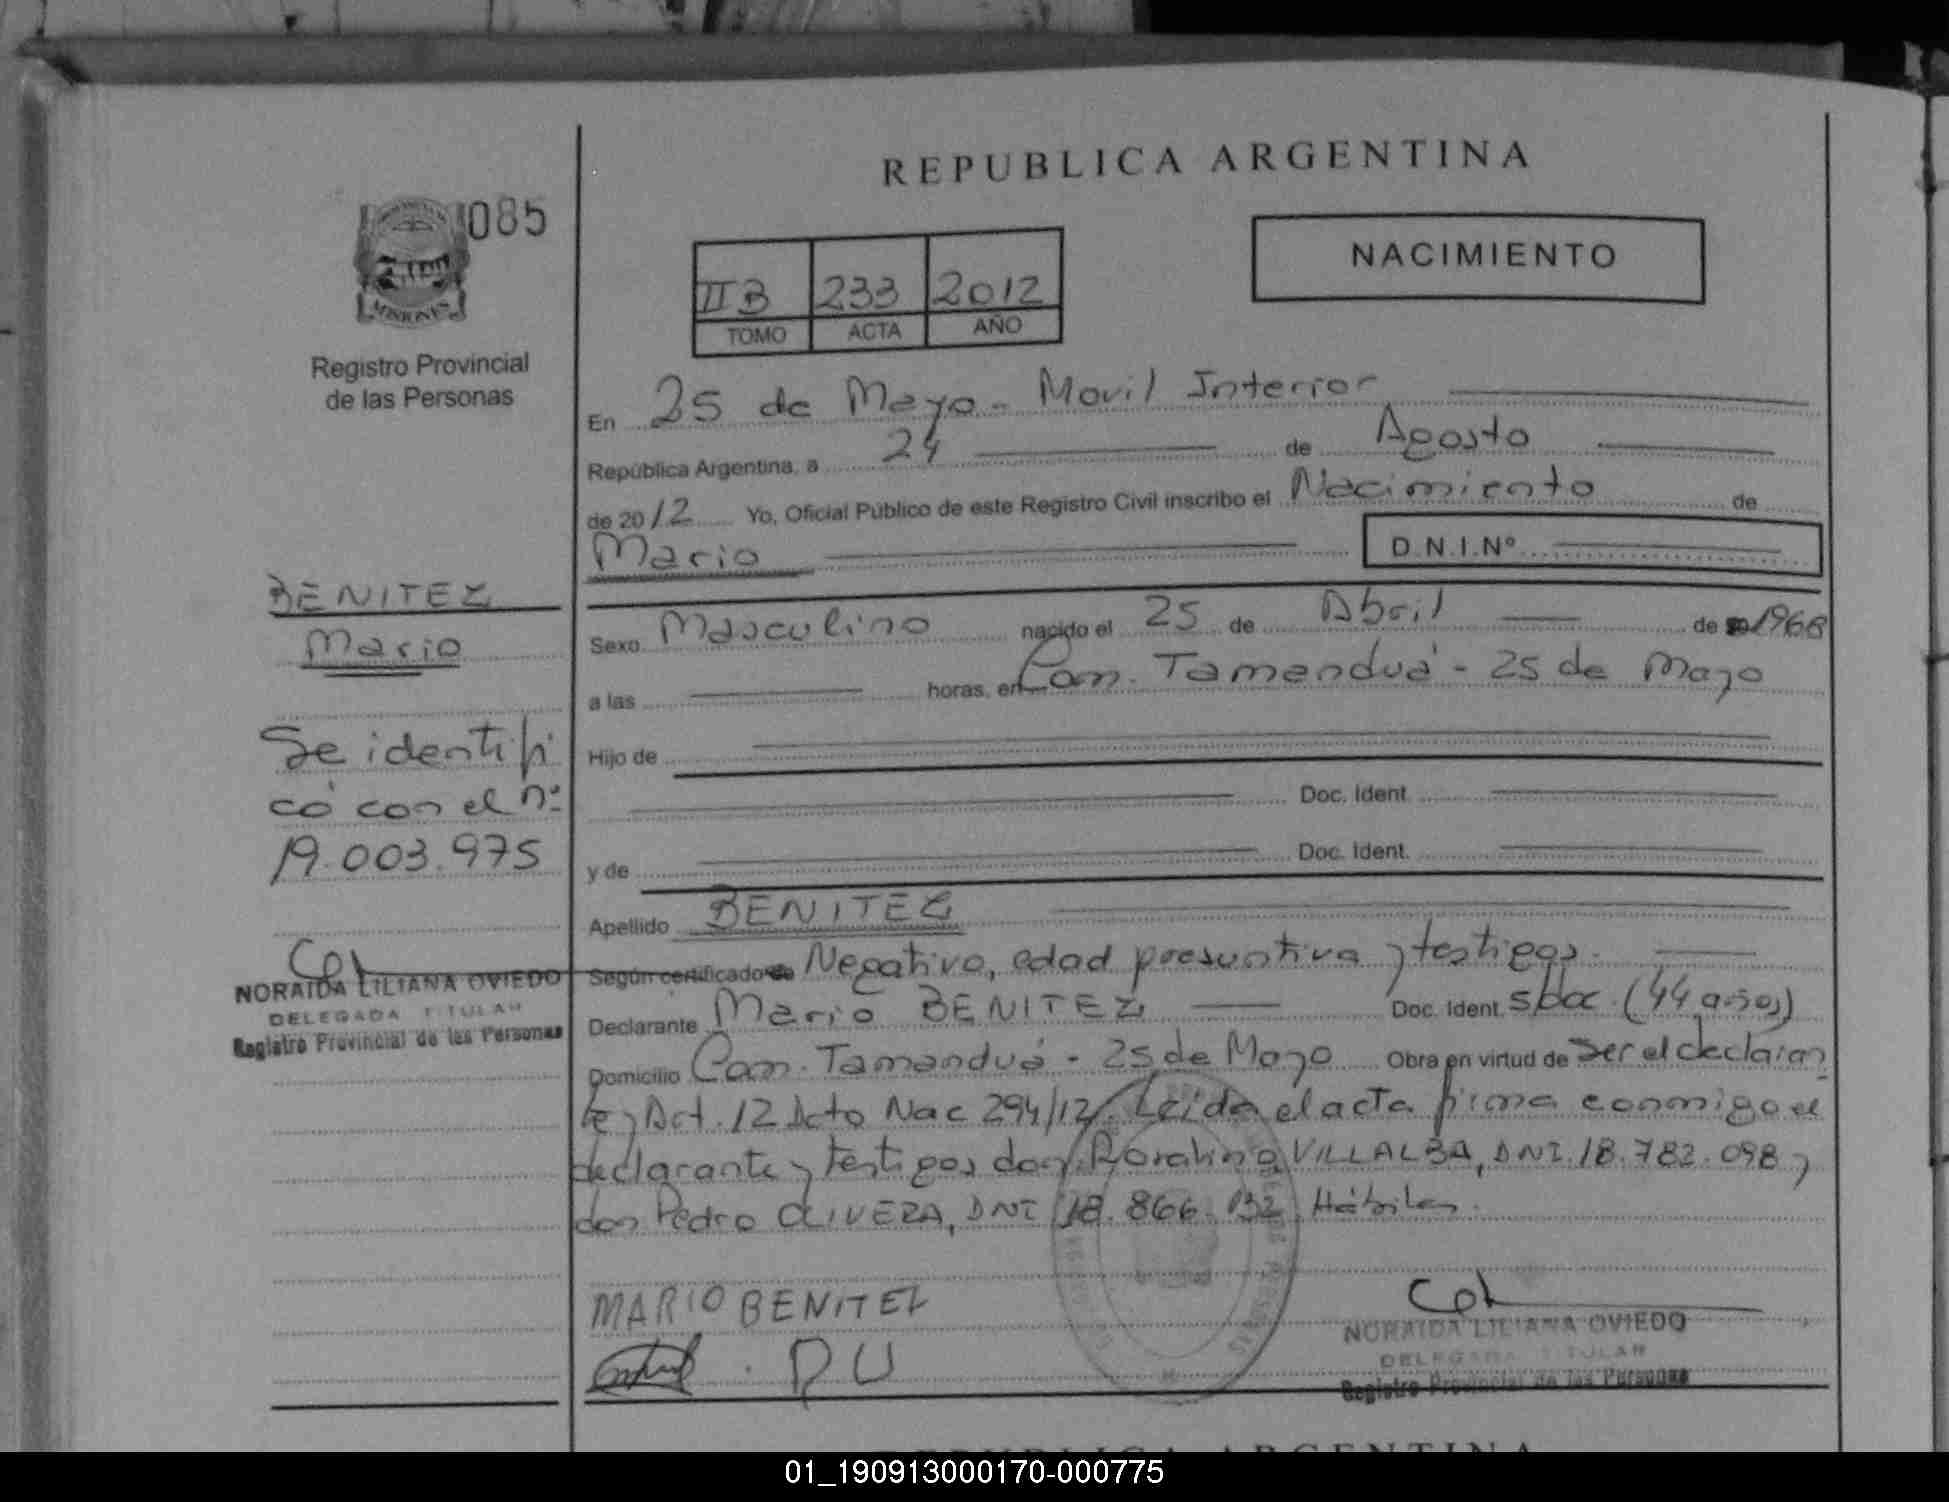 REPUBLICA ARGENTINA
085
MISIONES
Registro Provincial
de las Personas
NACIMIENTO
II B 233 2012
TOMO ACTA AÑO
En 25 de Mayo - Movil Interior
República Argentina, a 24 de Agosto
de 2012 Yo, Oficial Público de este Registro Civil inscribo el Nacimiento de
Mario D.N.I.Nº
Sexo Masculino nacido el 25 de Abril de 1968
a las horas, en Com. Tamanduá - 25 de Mayo
Hijo de
Doc. Ident.
y de Doc. Ident.
Apellido BENITEZ
Según certificado de Negativo, edad presuntiva y testigos.
Declarante Mario BENITEZ Doc. Ident. s/doc. (44 años)
Domicilio Com. Tamanduá - 25 de Mayo Obra en virtud de ser el declaran
te y Act. 12 Acto Nac 294/12. Leida el acta firma conmigo el
declarante y testigos don Rosalino VILLALBA, DNI 18.782.098 y
don Pedro OLIVERA, DNI 18.866.132. Hábiles.
MARIO BENITEZ
NORAIDA LILIANA OVIEDO
DELEGADA TITULAR
Registro Provincial de las Personas
BENITEZ
Mario
Se identifi
có con el nº
19.003.975
NORAIDA LILIANA OVIEDO
DELEGADA TITULAR
Registro Provincial de las Personas
REPUBLICA ARGENTINA
01_190913000170-000775